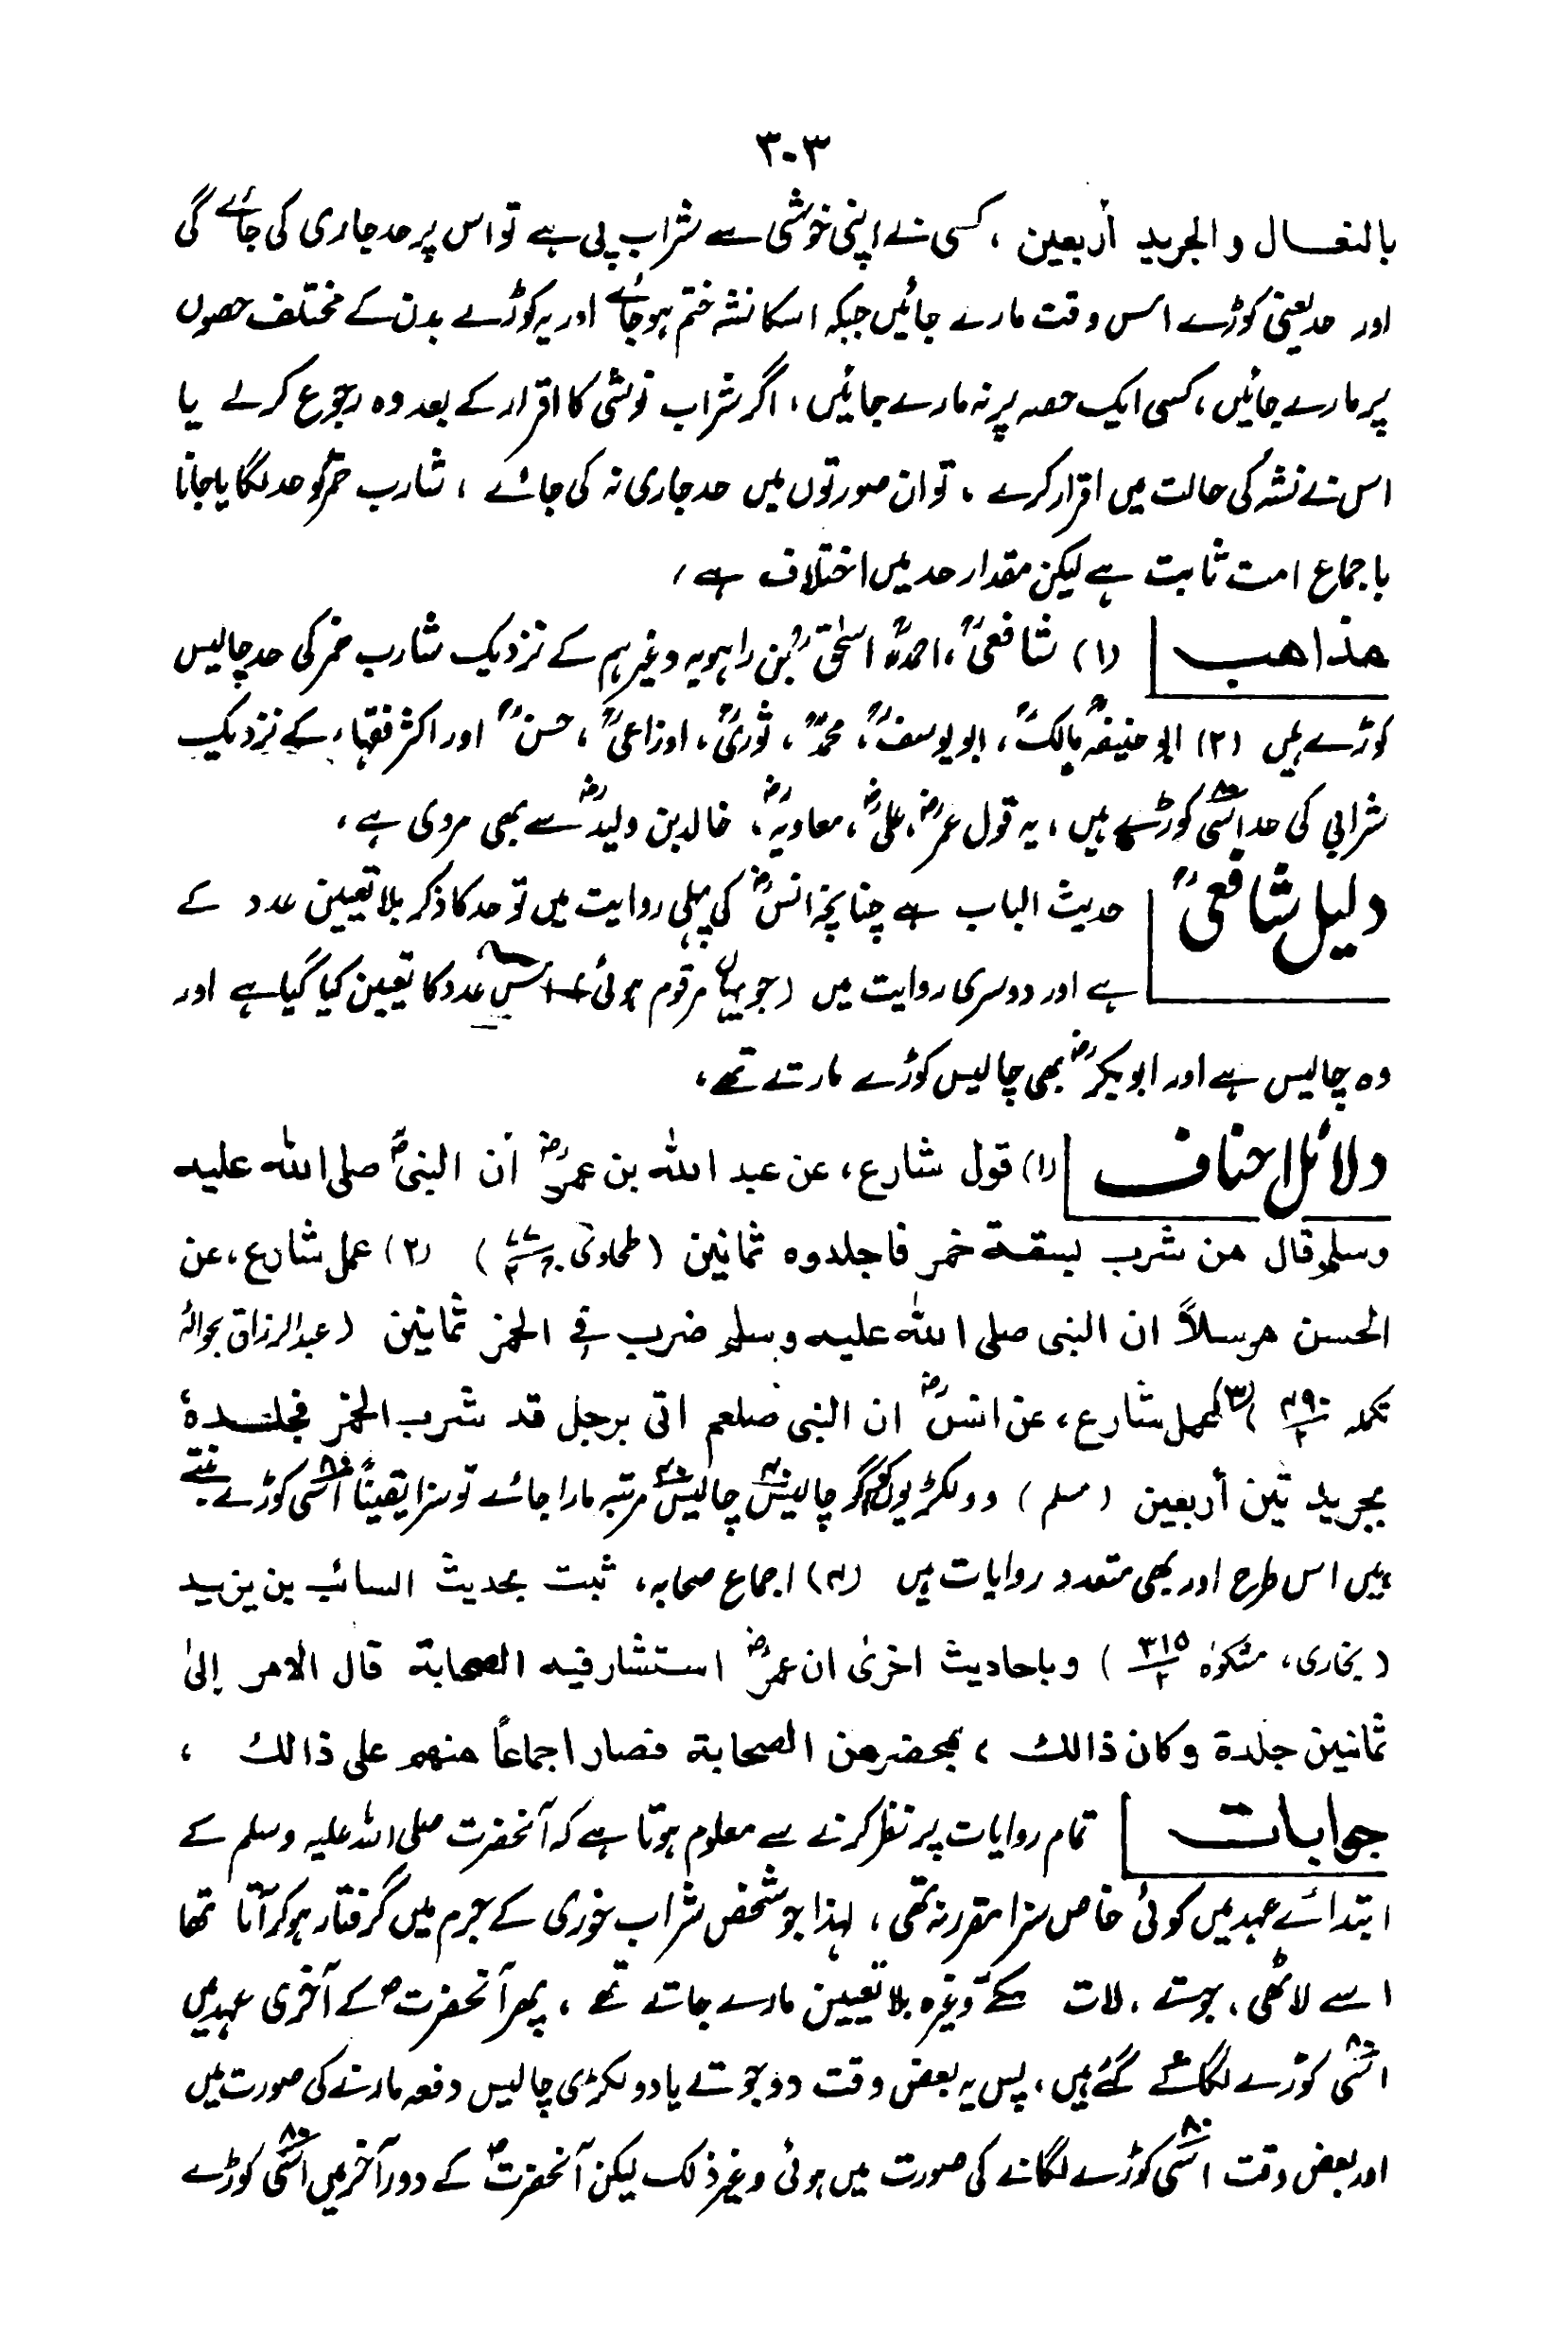 ۳۰۳
بالنعال والجرید أربعین ، کسی نے اپنی خوشی سے شراب پی ہے تو اس پر حد جاری کی جائے گی
اور حد یعنی کوڑے اس وقت مارے جائیں جبکہ اسکا نشہ ختم ہو جائے اور یہ کوڑے بدن کے مختلف حصوں
پر مارے جائیں ، کسی ایک حصہ پر نہ مارے جائیں ، اگر شراب نوشی کا اقرار کے بعد وہ رجوع کرلے یا
اس نے نشہ کی حالت میں اقرار کرے ، تو ان صورتوں میں حد جاری نہ کی جائے ، شارب خمر کو حد لگایا جانا
باجماع امت ثابت ہے لیکن مقدار حد میں اختلاف ہے ،
مذاهب (۱) شافعیؒ ، احمدؒ ، اسحٰقؒ بن راہویہ وغیرہم کے نزدیک شارب خمر کی حد چالیس
کوڑے ہیں (۲) ابو حنیفہؒ مالکؒ ، ابو یوسفؒ ، محمدؒ ، ثوریؒ ، اوزاعیؒ ، حسنؒ اور اکثر فقہاء کے نزدیک
شرابی کی حد اسّی۸۰ کوڑے ہیں ، یہ قول عمرؓ ، علیؓ ، معاویہؓ ، خالد بن ولیدؓ سے بھی مروی ہے ،
دلیل شافعیؒ حدیث الباب ہے چنانچہ انسؓ کی پہلی روایت میں تو حد کا ذکر بلا تعیین عدد کے
ہے اور دوسری روایت میں (جو یہاں مرقوم ہوئی) اس عدد کا تعیین کیا گیا ہے اور
وہ چالیس ہے اور ابو بکرؓ بھی چالیس کوڑے مارتے تھے ،
دلائل احناف (۱) قول شارع ، عن عبد اللہ بن عمرؓ أن النبیؐ صلی اللہ علیہ
وسلم قال من شرب بسقة خمر فاجلدوہ ثمانین (طحاوی) (۲) عمل شارع ، عن
الحسن مرسلاً ان النبی صلی اللہ علیہ وسلم ضرب فی الخمر ثمانین (عبدالرزاق بحوالۂ
تکملہ ۴۹۰/۲) (۳) عمل شارع ، عن انسؓ ان النبی صلعم اتی برجل قد شرب الخمر فجلدہٗ
بجرید تین أربعین (مسلم) دو لکڑیوں کو اگر چالیس۴۰ چالیس۴۰ مرتبہ مارا جائے تو سزا یقیناً اسّی۸۰ کوڑے بنتے
ہیں اس طرح اور بھی متعدد روایات ہیں (۴) اجماع صحابہ ، ثبت بحدیث السائب بن یزید
(بخاری ، مشکوٰۃ ۳۱۵/۲) وباحادیث اخریٰ ان عمرؓ استشار فیہ الصحابة قال الامر إلیٰ
ثمانین جلدة وکان ذالک ، بمحضر من الصحابة فصار اجماعاً منهم علی ذالک ،
جوابات تمام روایات پر نظر کرنے سے معلوم ہوتا ہے کہ آنحضرت صلی اللہ علیہ وسلم کے
ابتدائے عہد میں کوئی خاص سزا مقرر نہ تھی ، لہذا جو شخص شراب خوری کے جرم میں گرفتار ہو کر آتا تھا
اسے لاٹھی ، جوتے ، لات مکّے وغیرہ بلا تعیین مارے جاتے تھے ، پھر آنحضرتؐ کے آخری عہد میں
اسّی۸۰ کوڑے لگائے گئے ہیں ، پس یہ بعض وقت دو جوتے یا دو لکڑی چالیس دفعہ مارنے کی صورت میں
اور بعض وقت اسّی۸۰ کوڑے لگانے کی صورت میں ہوئی وغیر ذلک لیکن آنحضرتؐ کے دور آخر میں اسّی۸۰ کوڑے